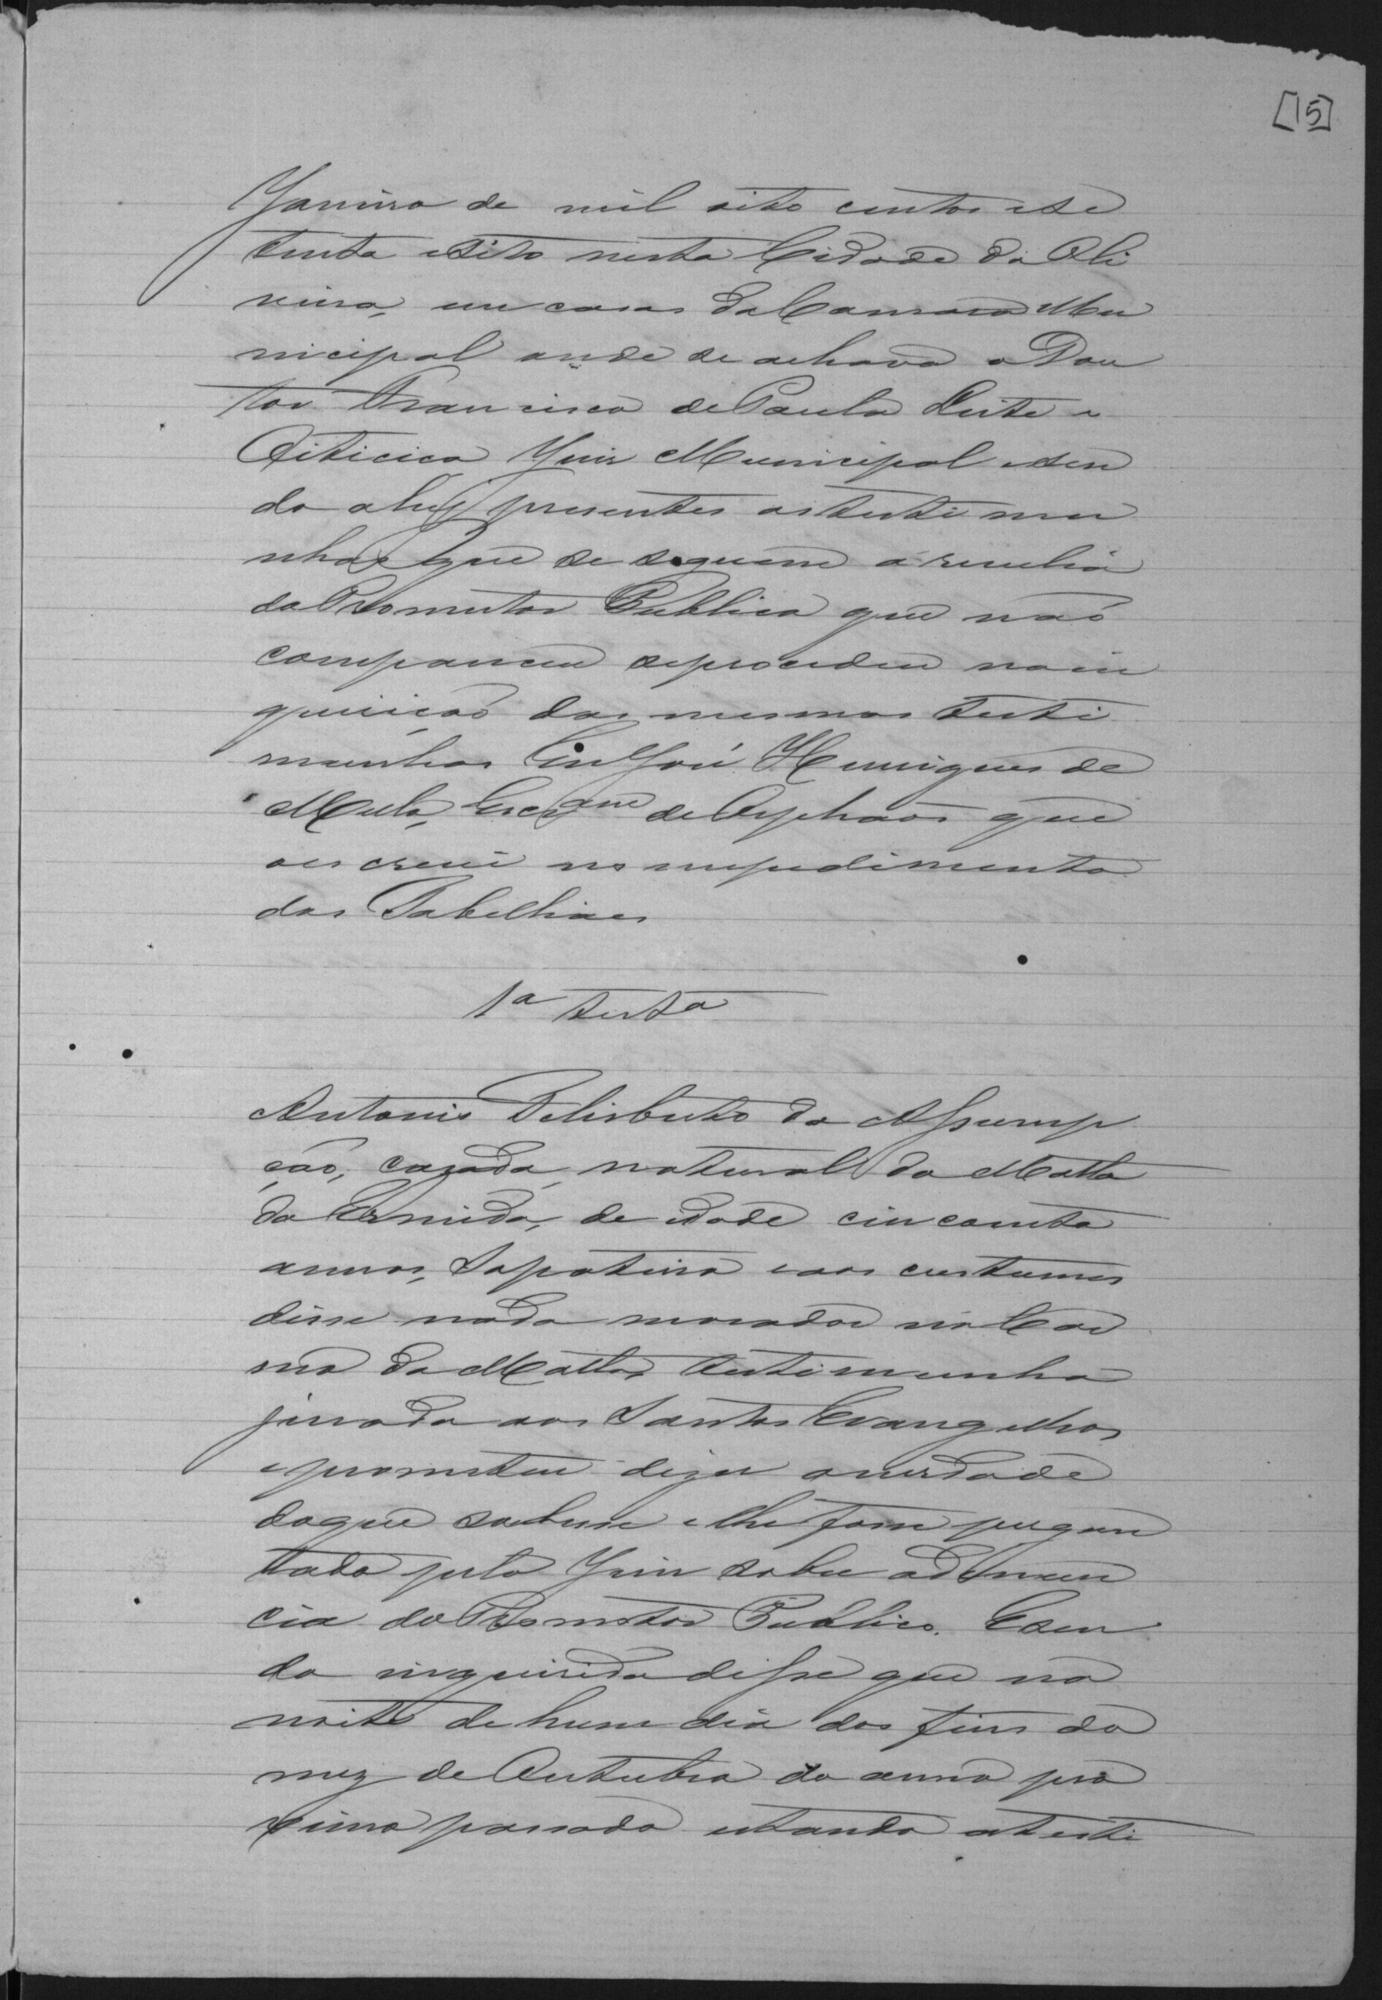 [15]
Janeiro de mil oito centos e se
tenta e oito nesta Cidade da Oli
veira, em casas da Camara Mu
nicipal onde se achava o Dou
tor Francisco de Paula Leite e
Oiticica Juiz Municipal e sen
do ahy presentes as testimu
nhas que se seguem á revelia
do Promotor Publico que não
compareceu se procedeu na in
quirição das mesmas testi
munhas Eu José Henriques de
Mello, Escr.am de Orphãos que
o escrevi no impedimento
dos Tabelliaes
1a testa
Antonio Felisberto da Assump
ção, cazado, natural da Matta
da Ermida, de idade cincoenta
annos, Sapateiro e aos custumes
disse nada morador no Car
mo da Matta, testimunha
jurada aos Santos Evangelhos
e prometeu dizer a verdade
do que soubesse e lhe fosse pergun
tado pelo Juiz sobre a denun
cia do Promotor Publico. E sen
do inquirida disse que na
noite de hum dia dos fins do
mez de Outubro do anno pro
ximo passado estando a testi